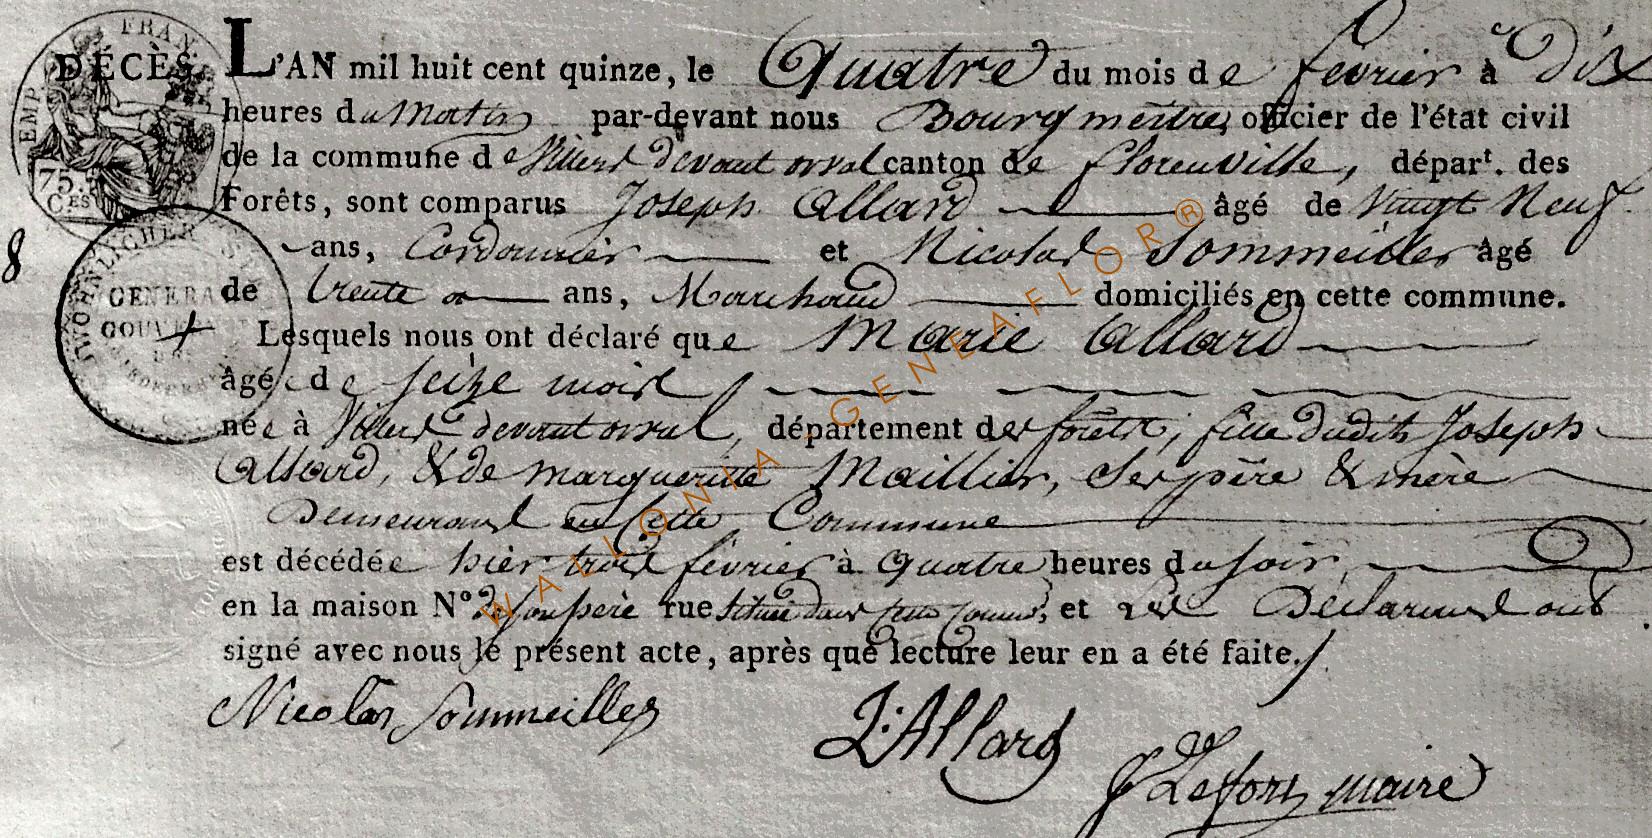 EMP. FRAN.
DÉCÈS.
75.
CES
8
GENERAL
GOUVERN
L'AN mil huit cent quinze, le Quatre du mois de fevrier à Dix
heures du Matin par-devant nous Bourgmeitre, officier de l'état civil
de la commune de Villers devant orval canton de florenville, départ. des
Forêts, sont comparus Joseph Allard âgé de Vingt Neuf
ans, Cordonnier et Nicolas Sommeilles âgé
de trente ans, Marchand domiciliés en cette commune.
Lesquels nous ont déclaré que Marie Allard
âgée de seize mois
née à Villers devant orval, département des forêts, fille dudit Joseph
Allard, & de marguerite Maillier, ses père & mère
Demeurant en Cette Commune
est décédée hier trois février à quatre heures du soir,
en la maison N° de son père rue située dans cette comm: et les Déclarans ont
signé avec nous le présent acte, après que lecture leur en a été faite./.
Nicolas Sommeilles
J:Allard
J Lefort maire
WALLONIA GENEAFLOR®